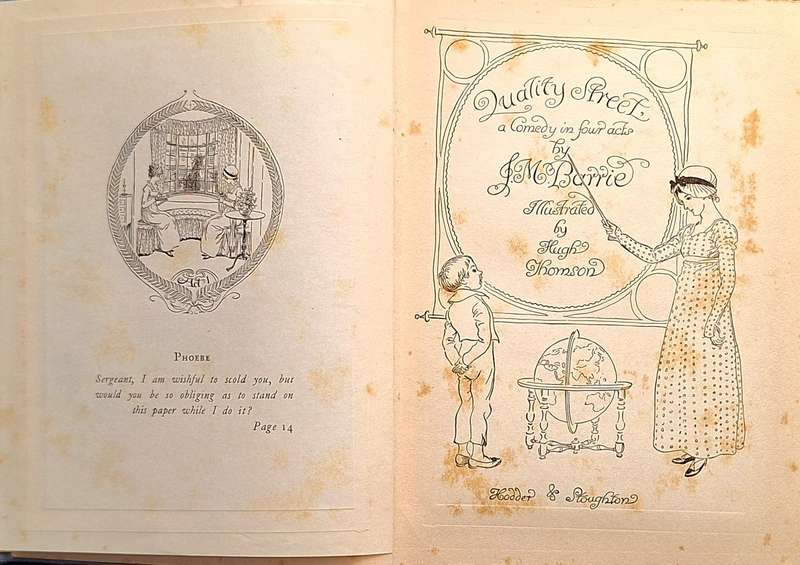 Act I
PHOEBE
Sergeant, I am wishful to scold you, but
would you be so obliging as to stand on
this paper while I do it?
Page 14
Quality Street,
a Comedy in four acts
by
J M Barrie
Illustrated
by
Hugh
Thomson
Hodder & Stoughton